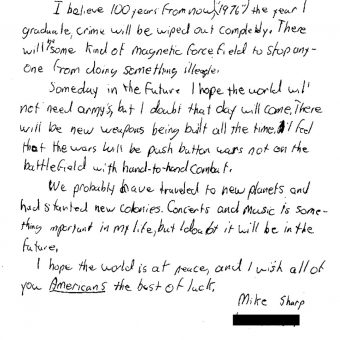 I believe 100 years from now, (1976) the year I
graduate, crime will be wiped out completly. There
will be some kind of magnetic force field to stop any-
one from doing something illegle.
Someday in the future I hope the world will
not need army's, but I doubt that day will come, There
will be new weapons being built all the time. I feel
that the wars will be push button wars not on the
battlefield with hand-to-hand combat.
We probably have traveled to new planets and
had started new colonies. Concerts and music is some-
thing important in my life, but I doubt it will be in the
future.
I hope the world is at peace, and I wish all of
you Americans the best of luck.
Mike Sharp